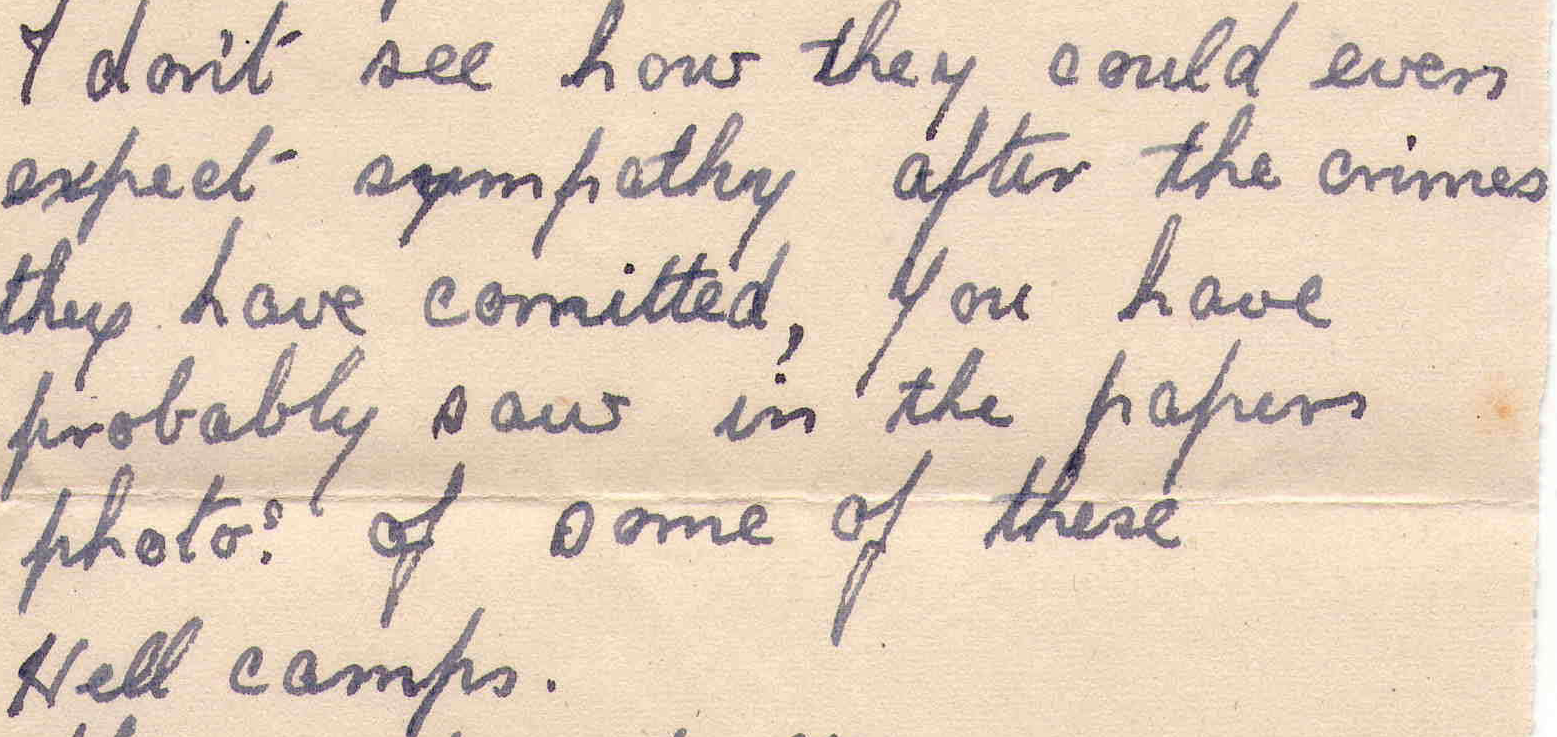 I don't see how they could even
expect sympathy after the crimes
they have comitted, You have
probably saw in the papers
photo.s of some of these
Hell camps.